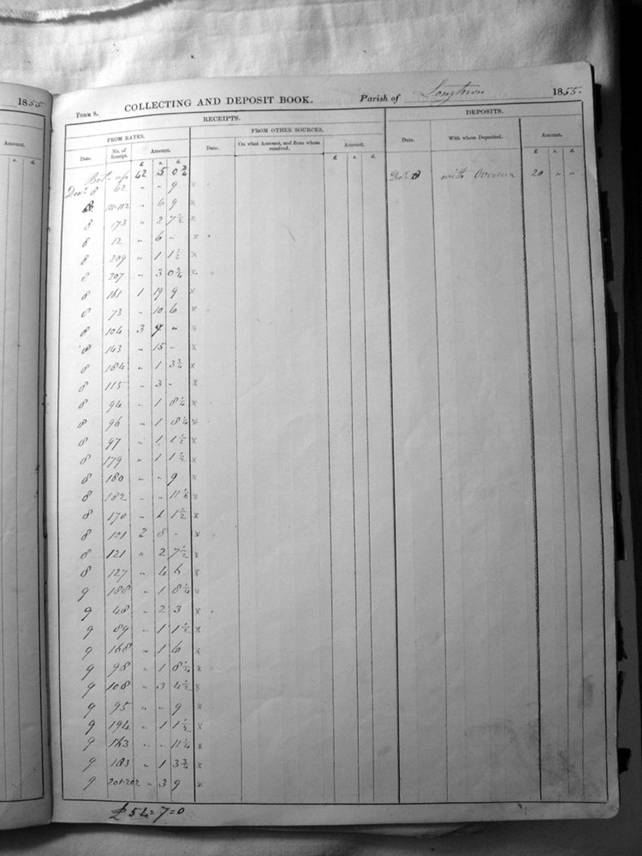 1855
Amount.
s. d.
FORM 8. COLLECTING AND DEPOSIT BOOK. Parish of Longtown 1855.
RECEIPTS. DEPOSITS.
FROM RATES. FROM OTHER SOURCES.
Date. No. of Receipt. Amount. Date. On what Account, and from whom received. Amount. Date. With whom Deposited. Amount.
£ s. d. £ s. d. £ s. d.
42 15 0¾
Decr 8 62 " " 9 × Decr 8 with Overseer 20 " "
8 " 6 9 ×
8 173 " 2 7½ ×
8 12 " 6 - ×
8 209 " 1 1½ ×
8 207 " 3 0¾ ×
8 161 1 19 9 ×
8 73 " 10 6 ×
8 104 3 9 " ×
8 143 " 15 - ×
8 184 " 1 3¾ ×
8 115 " 3 - ×
8 94 " 1 8¼ ×
8 96 " 1 8¼ ×
8 97 " 1 1½ ×
8 179 " 1 1½ ×
8 180 " - 9 ×
8 182 " - 11¼ ×
8 170 " 1 1½ ×
8 101 2 8 - ×
8 121 " 2 7½ ×
8 127 " 4 6 ×
9 188 " 1 8¼ ×
9 48 " 2 3 ×
9 89 " 1 1½ ×
9 168 " 1 6 ×
9 98 " 1 8¼ ×
9 108 " 3 4½ ×
9 95 " " 9 ×
9 194 " 1 1½ ×
9 163 " - 11¼ ×
9 183 " 1 3¾ ×
9 201-202 " 3 9 ×
£54=7=0